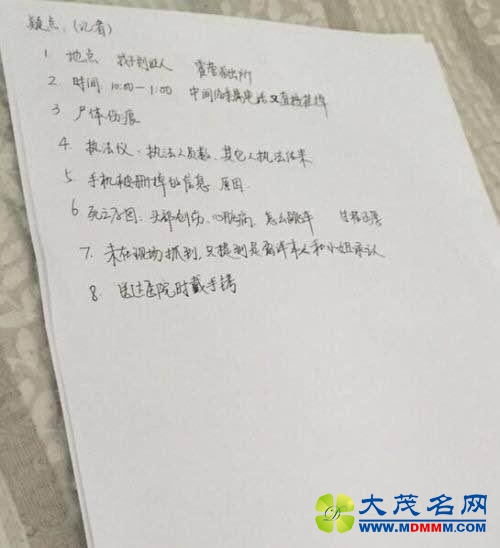 疑点：(记者)
1 地点 找到证人 霍营派出所
2 时间 10:00-1:00 中间给家属电话又直接挂掉
3 尸体伤痕
4. 执法仪、执法人员数、其它人执法结果
5 手机和被删掉的信息 原因
6 死亡原因: 头部创伤、心脏病、怎么跳车
7. 未在现场抓到, 只提到是当事人和小姐承认
8. 送过医院时戴手铐
大茂名网
WWW.MDMMM.COM